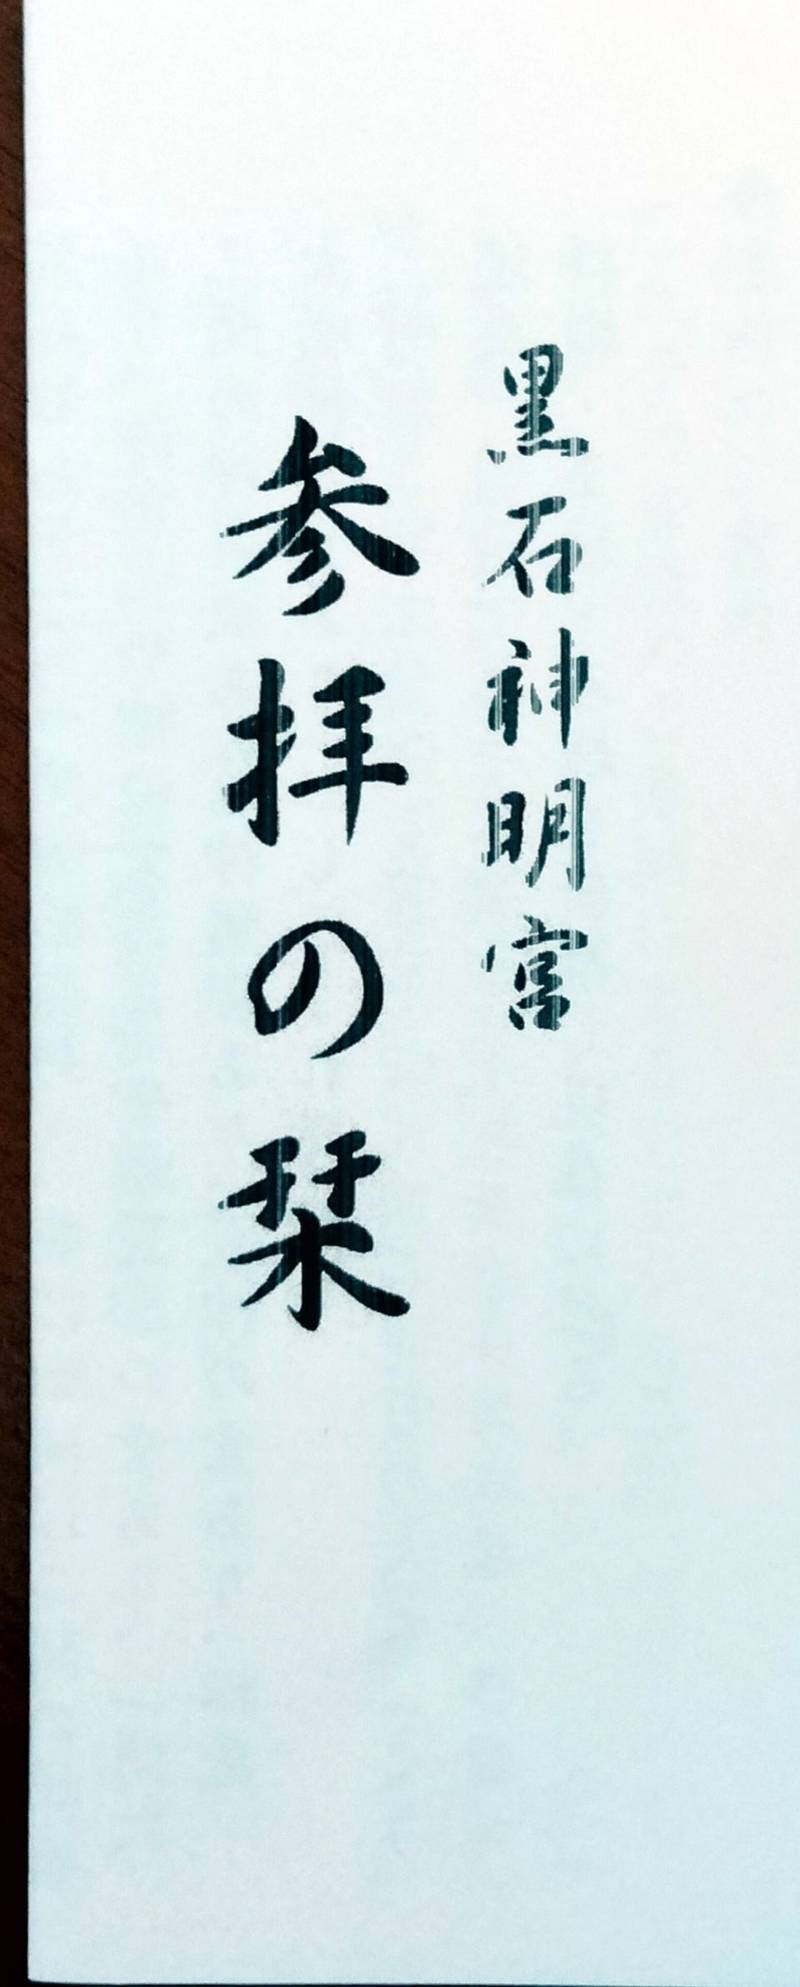 黒石神明宮
参拝の栞